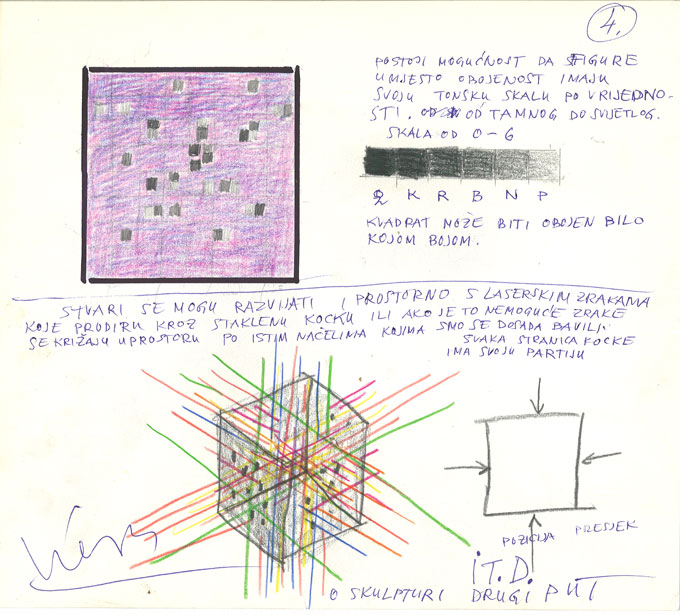 4.
POSTOJI MOGUĆNOST DA FIGURE
UMJESTO OBOJENOST IMAJU
SVOJU TONSKU SKALU PO VRIJEDNO-
STI. OD TAMNOG DO SVIJETLOG.
SKALA OD 0-6
Q K R B N P
KVADRAT MOŽE BITI OBOJEN BILO
KOJOM BOJOM.
STVARI SE MOGU RAZVIJATI I PROSTORNO S LASERSKIM ZRAKAMA
KOJE PRODIRU KROZ STAKLENU KOCKU ILI AKO JE TO NEMOGUĆE ZRAKE
SE KRIŽAJU U PROSTORU PO ISTIM NAČELIMA KOJIMA SMO SE DOSADA BAVILI.
SVAKA STRANICA KOCKE
IMA SVOJU PARTIJU
POZICIJA PRESJEK
I T. D.
O SKULPTURI DRUGI PUT